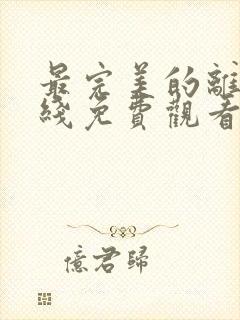 最完美的離
綫免費觀看
億君歸